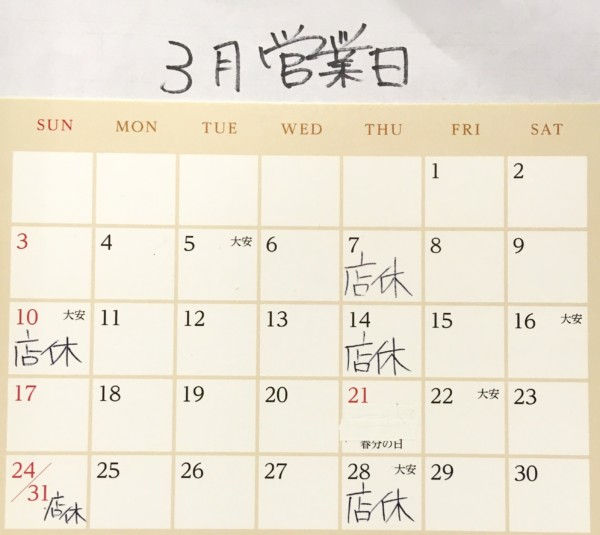 3月営業日
SUN MON TUE WED THU FRI SAT
1 2
3 4 5 大安 6 7 8 9
店休
10 大安 11 12 13 14 15 16 大安
店休 店休
17 18 19 20 21 22 大安 23
春分の日
24/31 25 26 27 28 大安 29 30
店休 店休